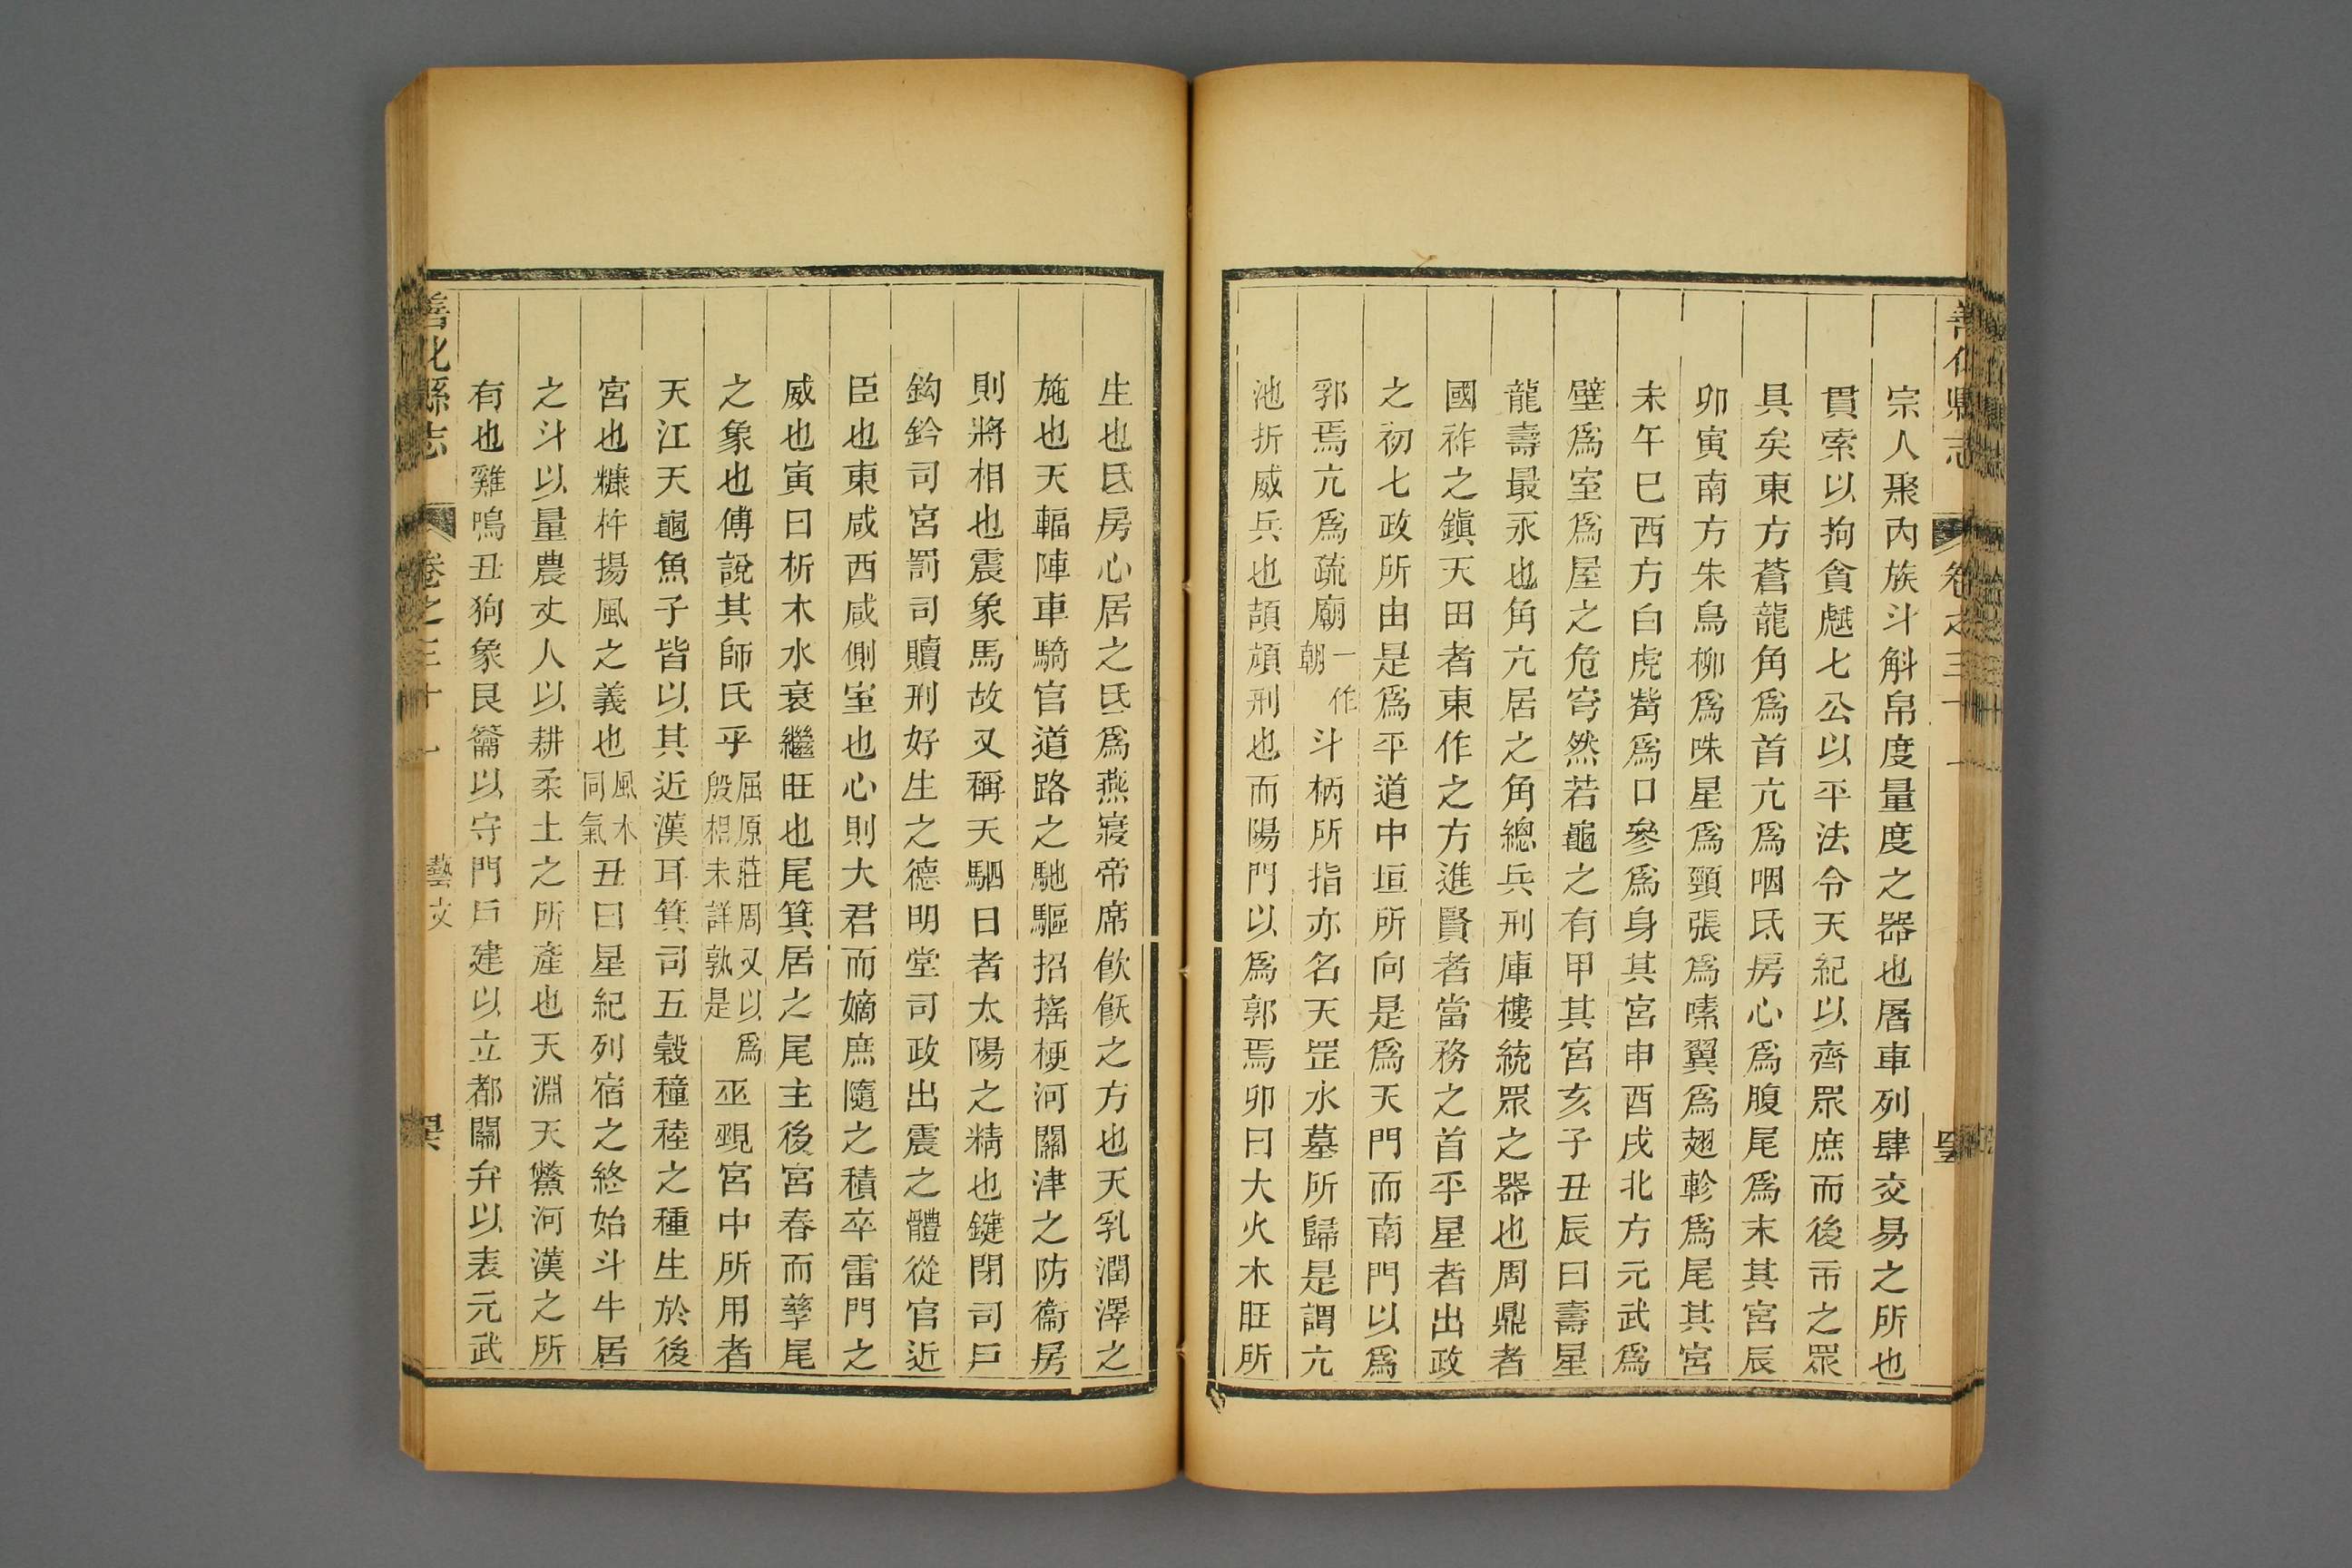 宗人聚內族斗斛帛度量度之器也屠車列肆交易之所也
貫索以拘貪尷七公以平法令天紀以齊眾庶而後帀之眾
具矣東方蒼龍角為首亢為咽氐房心為腹尾為末其宮辰
卯寅南方朱鳥柳為咮星為頸張為嗉翼為翅軫為尾其宮
未午巳西方白虎觜為口參為身其宮申酉戌北方元武為
壁為室為屋之危穹然若龜之有甲其宮亥子丑辰曰壽星
龍壽最永也角亢居之角總兵刑庫樓統眾之器也周鼎者
國祚之鎭天田者東作之方進賢者當務之首平星者出政
之初七政所由是為平道中垣所向是為天門而南門以為
郛焉亢為疏廟一作朝斗柄所指亦名天罡水墓所歸是謂亢
池折威兵也頡頏刑也而陽門以為郭焉卯曰大火木旺所
善化縣志
卷之三十一
生也氐房心居之氐為燕寢帝席飮飫之方也天乳潤澤之
施也天輻陣車騎官道路之馳驅招搖梗河關津之防衞房
則將相也震象馬故又稱天駟日者太陽之精也鍵閉司戸
鈎鈐司宮罰司贖刑好生之德明堂司政出震之體從官近
臣也東咸西咸側室也心則大君而嫡庶隨之積卒雷門之
威也寅曰析木水衰繼旺也尾箕居之尾主後宮春而孳尾
之象也傅說其師氏乎屈原莊周又以為殷相未詳孰是巫覡宮中所用者
天江天龜魚子皆以其近漢耳箕司五穀穜稑之種生於後
宮也糠杵揚風之義也風木同氣丑曰星紀列宿之終始斗牛居
之斗以量農丈人以耕柔土之所產也天淵天鱉河漢之所
有也雞鳴丑狗象艮籥以守門戸建以立都關弁以表元武
善化縣志
卷之三十一
藝文